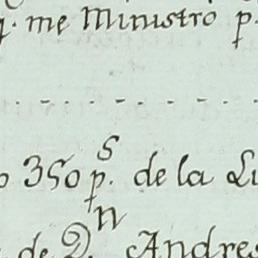 q. me Ministro p.
350 p.s de la
de D.n Andres